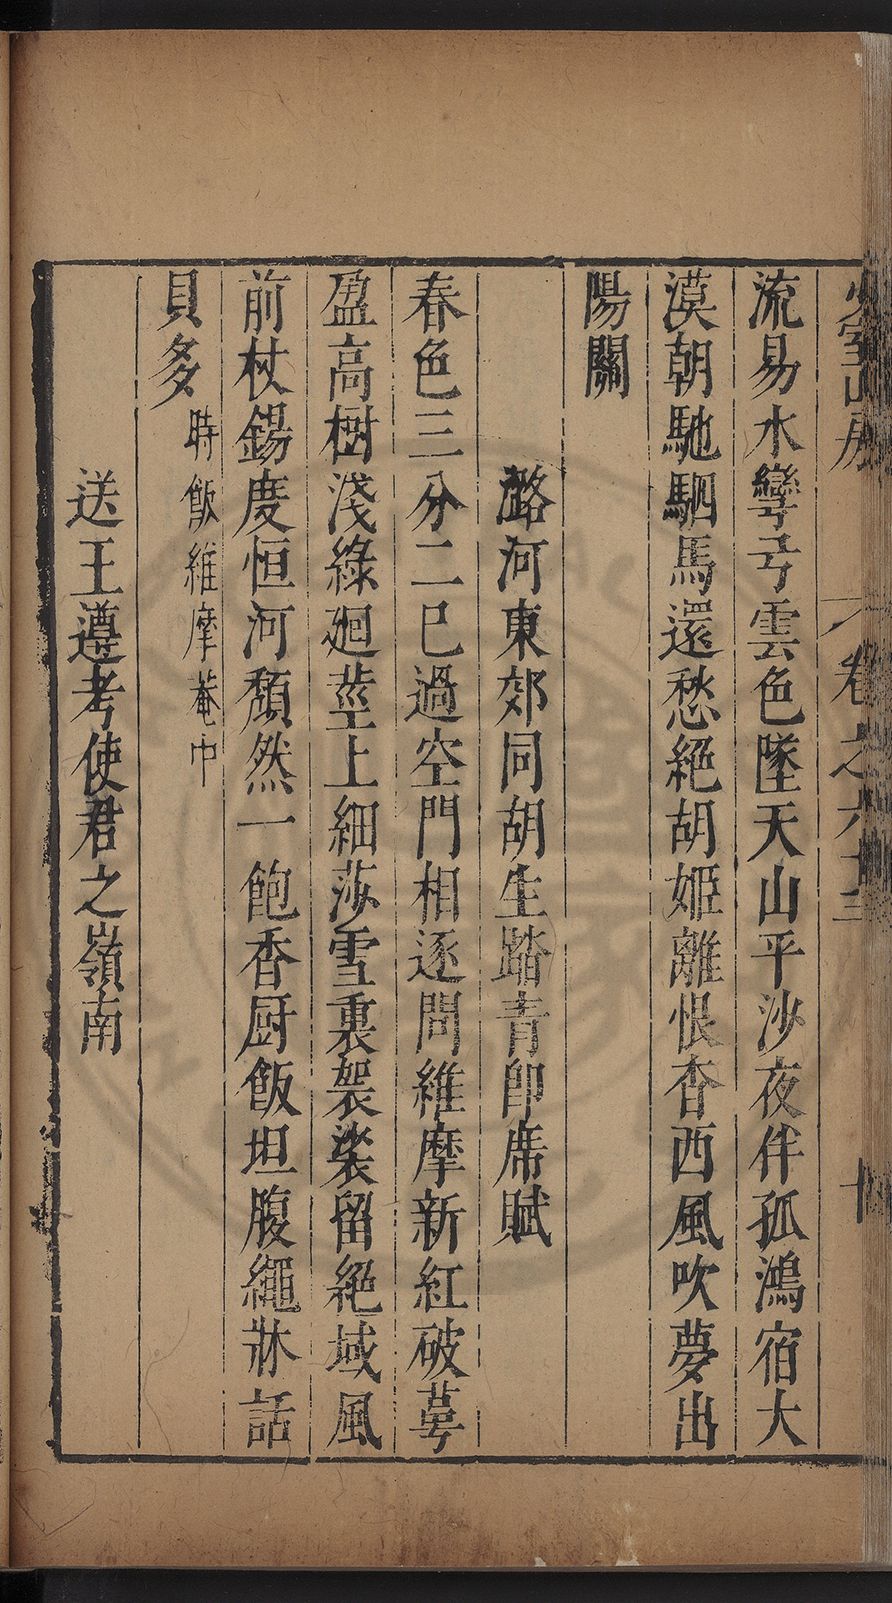 少室山房 卷之六十三 十
流易水彎弓雲色墜天山平沙夜伴孤鴻宿大
漠朝馳駟馬還愁絕胡姬離恨杳西風吹夢出
陽關
潞河東郊同胡生踏青即席賦
春色三分二已過空門相逐問維摩新紅破萼
盈高樹淺綠廻莖上細莎雪裏袈裟留絕域風
前杖錫度恒河頹然一飽香厨飯坦腹繩牀話
貝多時飯維摩菴中
送王遵考使君之嶺南